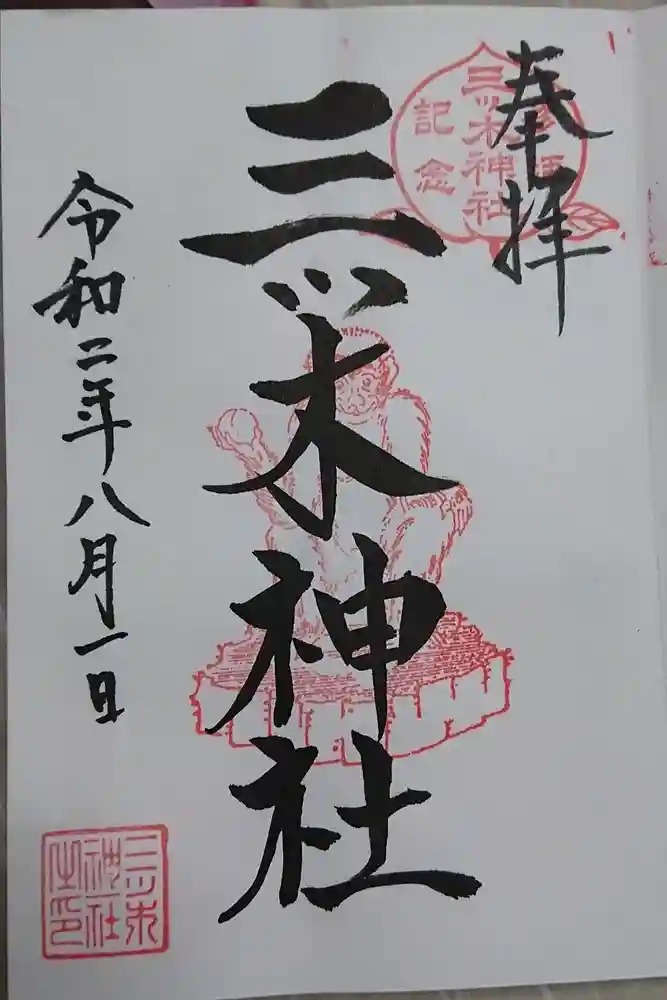 奉拝
三ツ木神社
記念
三ツ木神社
令和二年八月一日
三ツ木
神社
之印